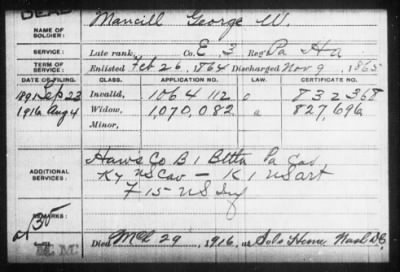 DEAD
NAME OF SOLDIER: Mancill George W.
SERVICE: Late rank, Co. E, 3 Reg't Pa H a
TERM OF SERVICE: Enlisted Feb. 26, 1864 Discharged Nov 9, 1865
DATE OF FILING. CLASS. APPLICATION NO. LAW. CERTIFICATE NO.
1891 Sep 23 Invalid, 1064 112 832368
1916 Aug 4 Widow, 1,070,082 a 827,696
Minor,
ADDITIONAL SERVICES: Co B 1 Pa Cav
Ky US Cav - K 1 US art
F 15 - US Inf
REMARKS:
Died Mch 29, 1916, at Sols Home D.C.